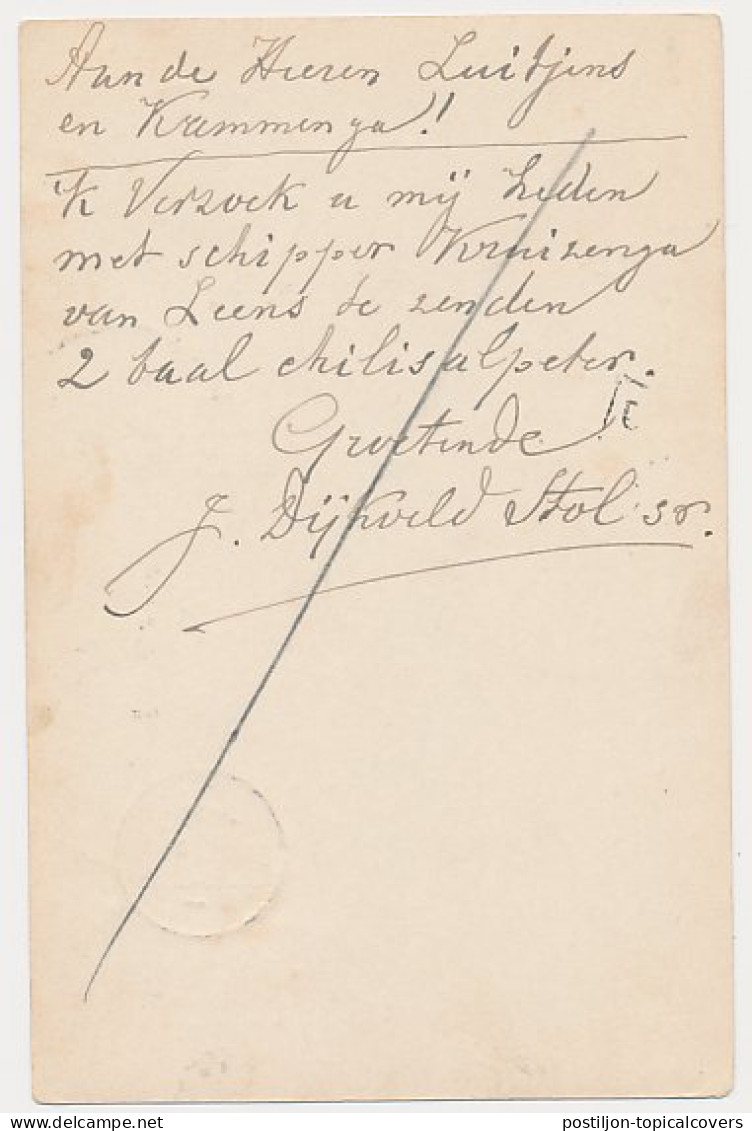 Aan de Heeren Luitjens
en Krammenga!!
'k Verzoek u mij heden
met schipper Kruizenga
van Leens te zenden
2 baal chilisalpeter.
Groetende
J. Dijkveld Stol sr.
postiljon-topicalcovers